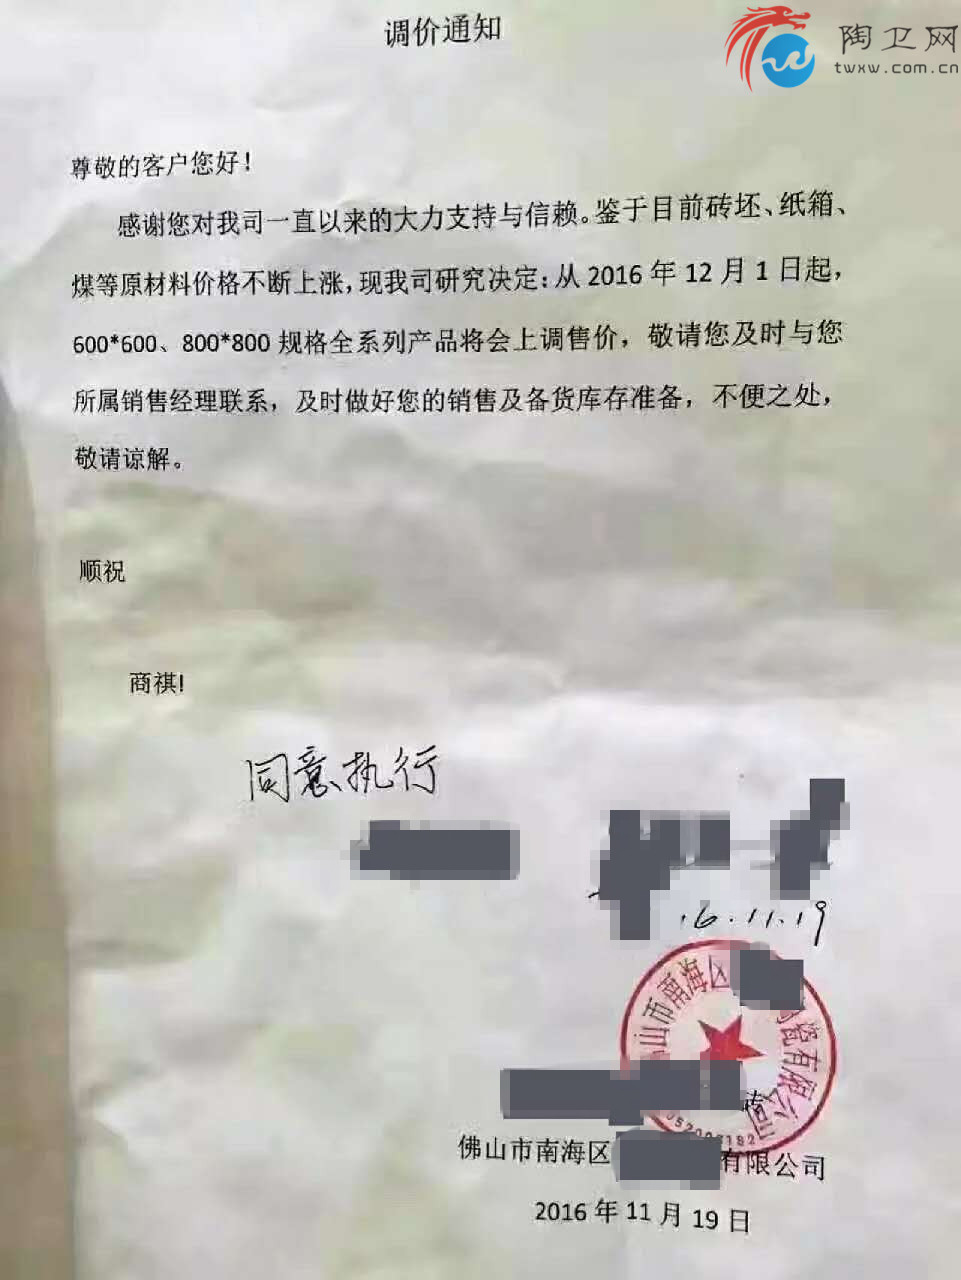 调价通知
陶卫网
twxw.com.cn
尊敬的客户您好！
感谢您对我司一直以来的大力支持与信赖。鉴于目前砖坯、纸箱、
煤等原材料价格不断上涨，现我司研究决定：从 2016 年 12 月 1 日起，
600*600、800*800 规格全系列产品将会上调售价，敬请您及时与您
所属销售经理联系，及时做好您的销售及备货库存准备，不便之处，
敬请谅解。
顺祝
商祺!
同意执行
16.11.19
山市南海区 瓷有限公司
砖
佛山市南海区 有限公司
2016 年 11 月 19 日